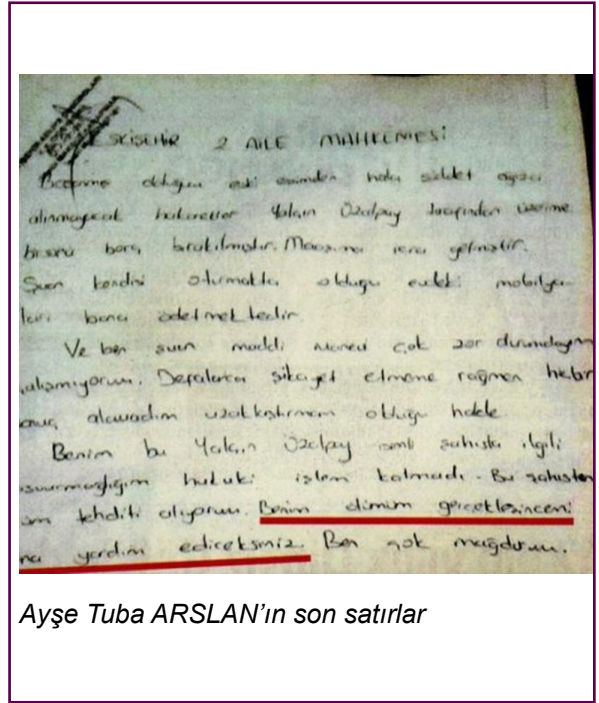 ESKİŞEHİR 2 AİLE MAHKEMESİ
olduğum eski eşimden hala şiddet
alınmayacak hakaretler Yalçın Özalpay tarafından üzerime
borç bırakılmıştır. Maaşıma icra gelmiştir.
Şuan kendisi oturmakta olduğu evdeki mobilya-
ları bana ödetmektedir.
Ve ben şuan maddi manevi çok zor durumdayım
alışmıyorum. Defalarca şikayet etmeme rağmen hebir
onuç alamadım uzaklaştırmam olduğu halde.
Benim bu Yalçın Özalpay isimli şahısla ilgili
şvurmadığım hukuki işlem kalmadı. Bu şahıstan
üm tehditi alıyorum. Benim ölümüm gerçekleşincemi
na yardım ediceksiniz. Ben çok mağdurum.
Ayşe Tuba ARSLAN’ın son satırlar